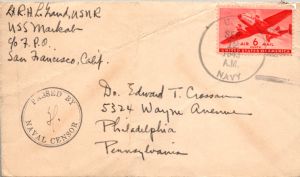 Lt R.H. L. Grand, USNR
USS Markab
c/o F.P.O.
San Francisco, Calif.
U.S.
1943
A.M.
NAVY
AIR 6 MAIL
UNITED STATES OF AMERICA
PASSED BY
NAVAL CENSOR
Dr. Edward T. Crossan
5324 Wayne Avenue
Philadelphia
Pennsylvania